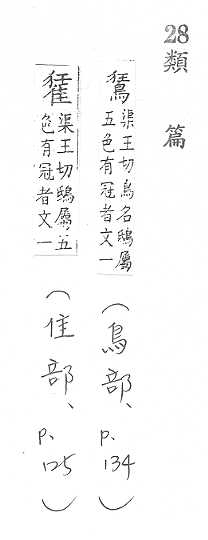 28 類篇
鵟
渠王切鳥名鴟屬
五色有冠者文一
(鳥部、p.134)
渠王切鴟屬五
色有冠者文一
(隹部、p.125)